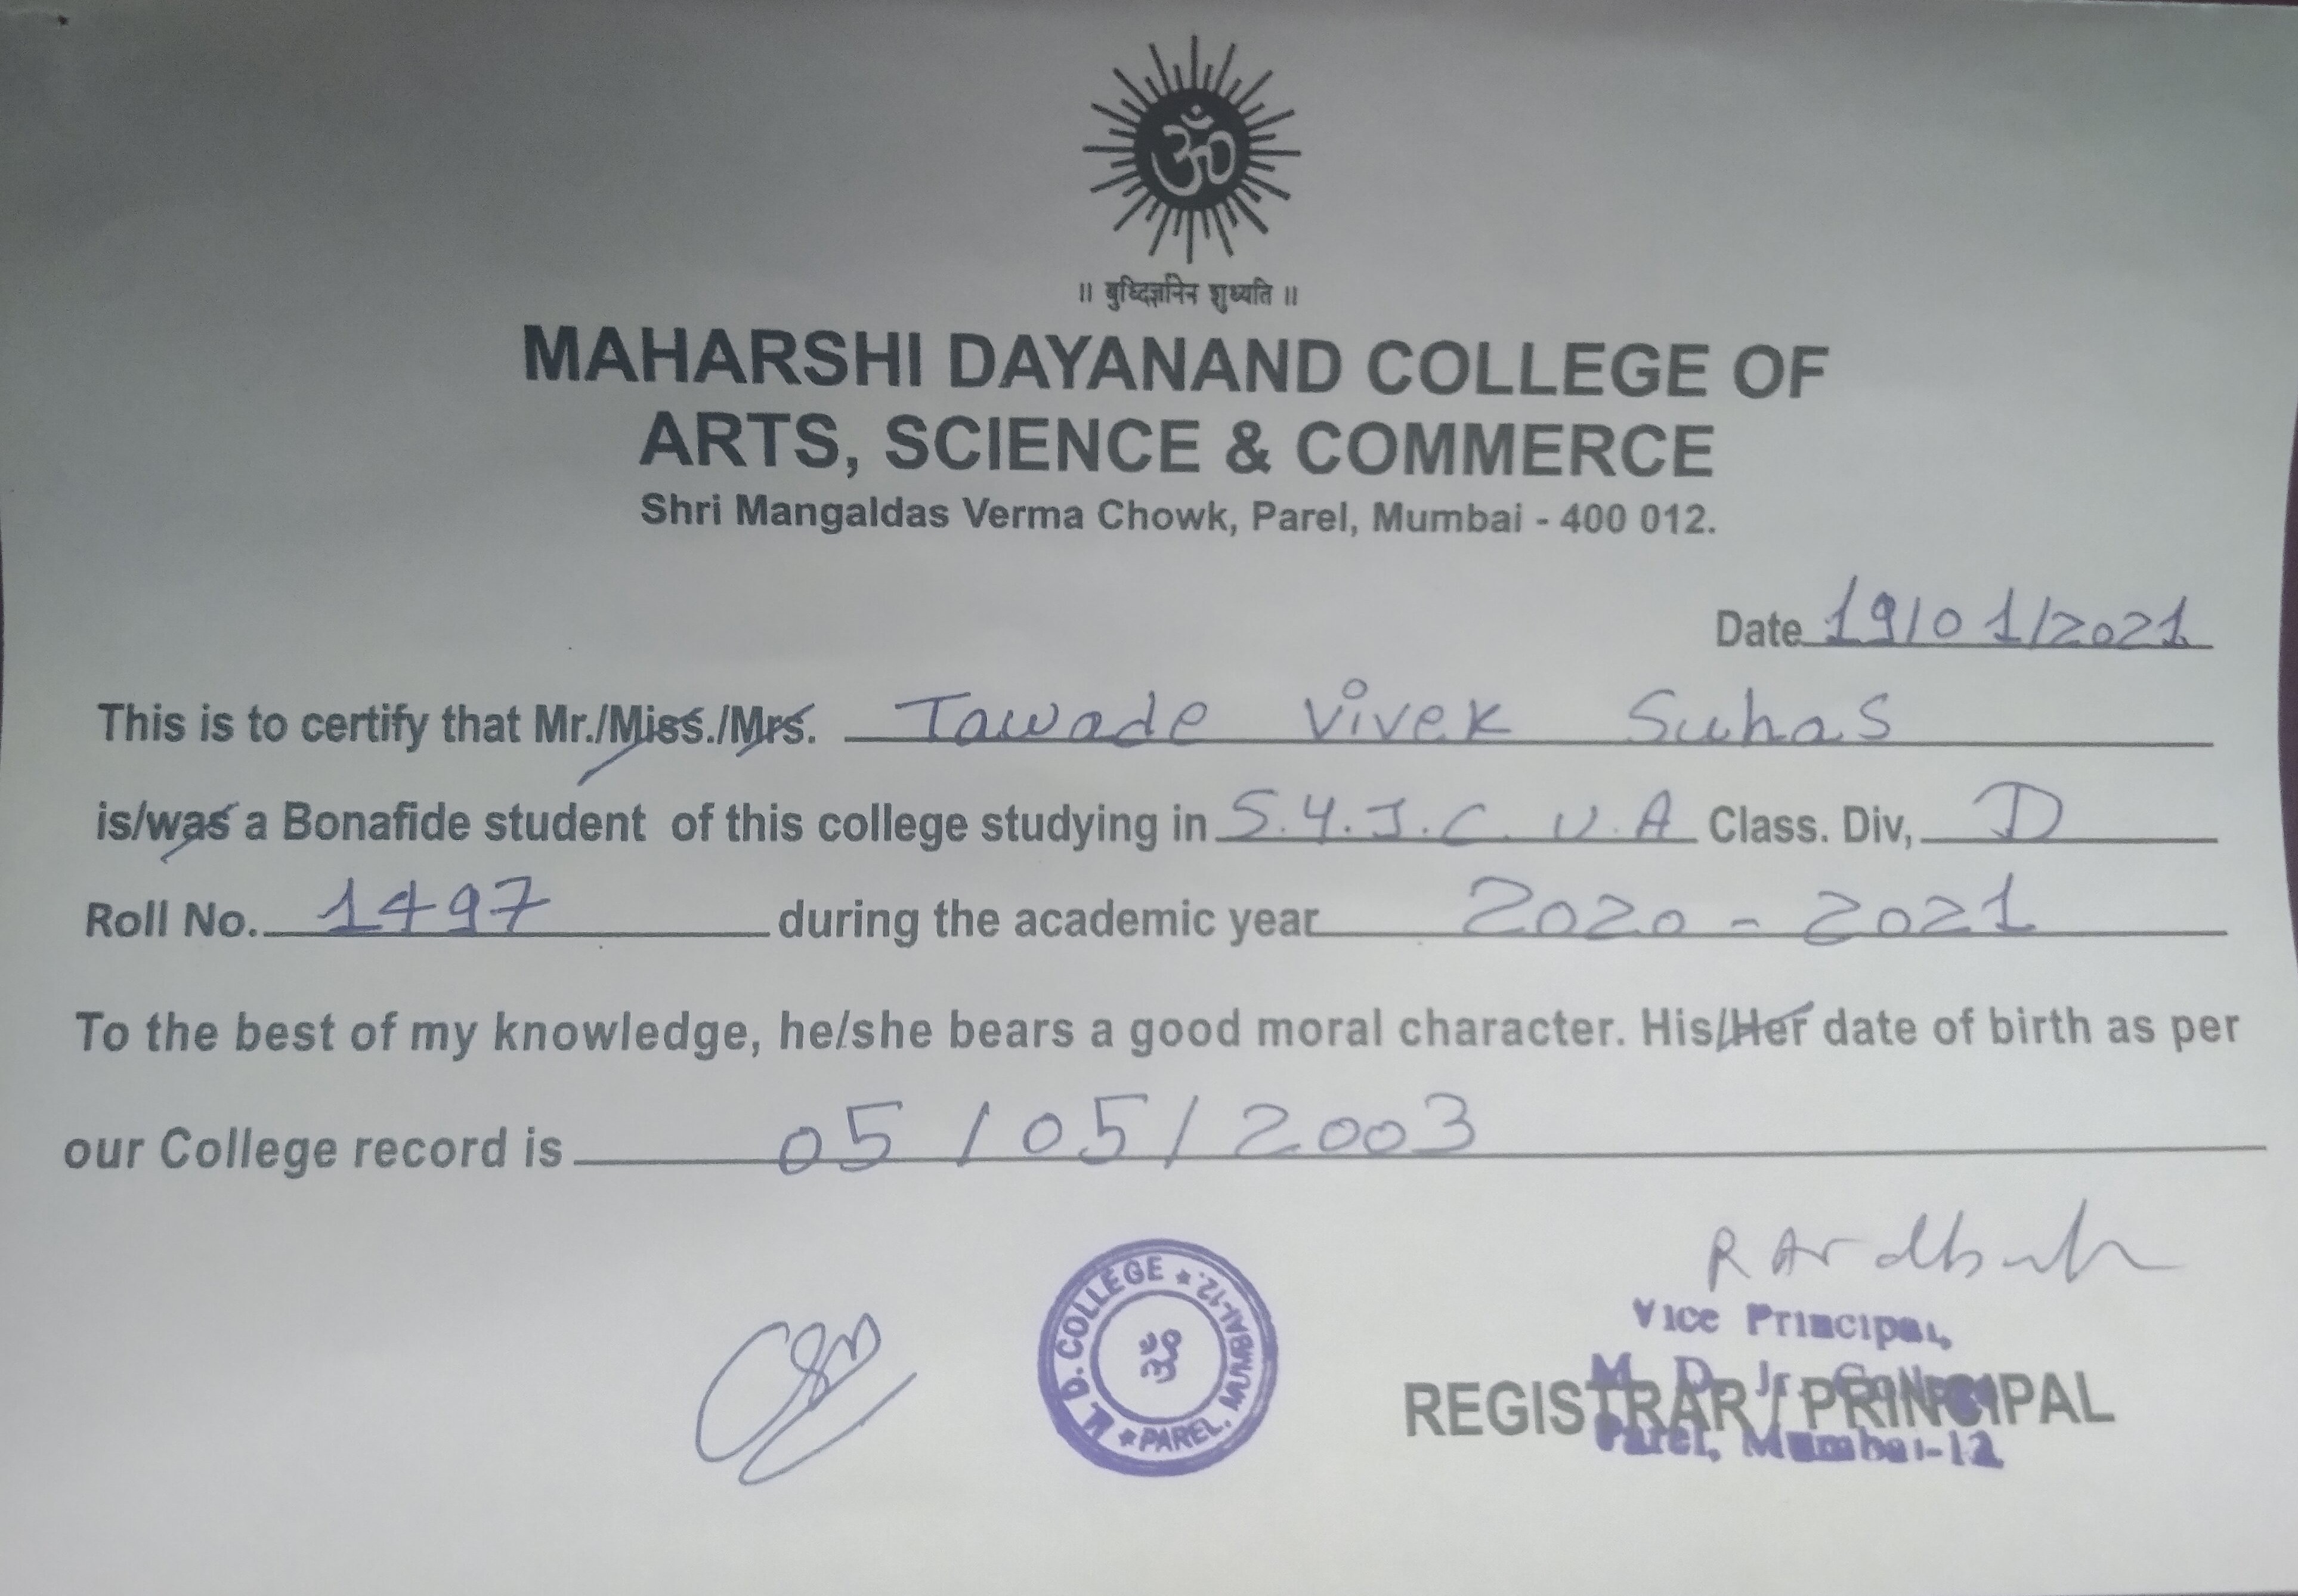 ॐ
॥ बुध्दिर्ज्ञानेन शुध्यति ॥
MAHARSHI DAYANAND COLLEGE OF
ARTS, SCIENCE & COMMERCE
Shri Mangaldas Verma Chowk, Parel, Mumbai - 400 012.
Date 19/01/2021
This is to certify that Mr./Miss./Mrs. Tawade Vivek Suhas
is/was a Bonafide student of this college studying in S.Y.J.C. U.A Class. Div, D
Roll No. 1497 during the academic year 2020 - 2021
To the best of my knowledge, he/she bears a good moral character. His/Her date of birth as per
our College record is 05/05/2003
M. D. COLLEGE ★ PAREL, MUMBAI-12. ★
ॐ
Vice Principal,
M. D. Jr.
REGISTRAR / PRINCIPAL
Parel, Mumbai-12